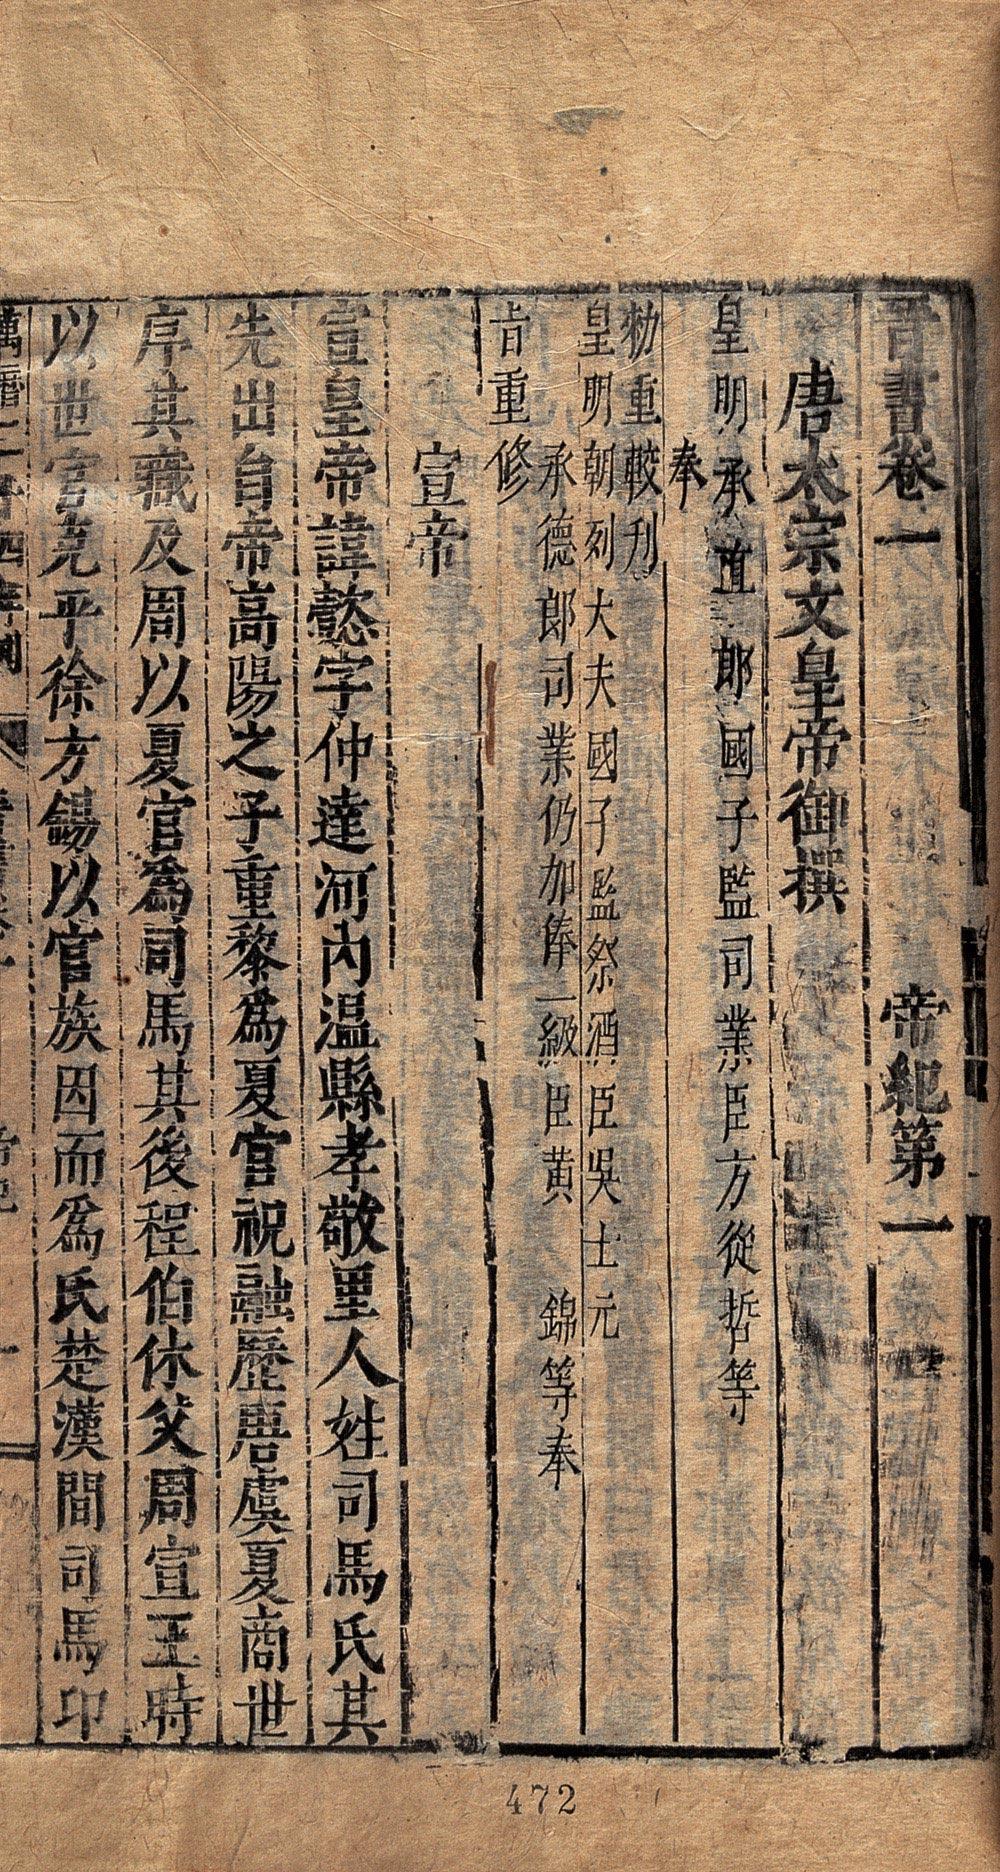 晉書卷一 帝紀第一
唐太宗文皇帝御撰
皇明承直郎國子監司業臣方從哲等
奉
勑重較刊
皇明朝列大夫國子監祭酒臣吳士元
承德郎司業仍加俸一級臣黃 錦等奉
旨重修
宣帝
宣皇帝諱懿字仲達河內溫縣孝敬里人姓司馬氏其
先出自帝高陽之子重黎爲夏官祝融歷唐虞夏商世
序其職及周以夏官爲司馬其後程伯休父周宣王時
以世官克平徐方錫以官族因而爲氏楚漢間司馬卬
萬曆二十四年刊
472